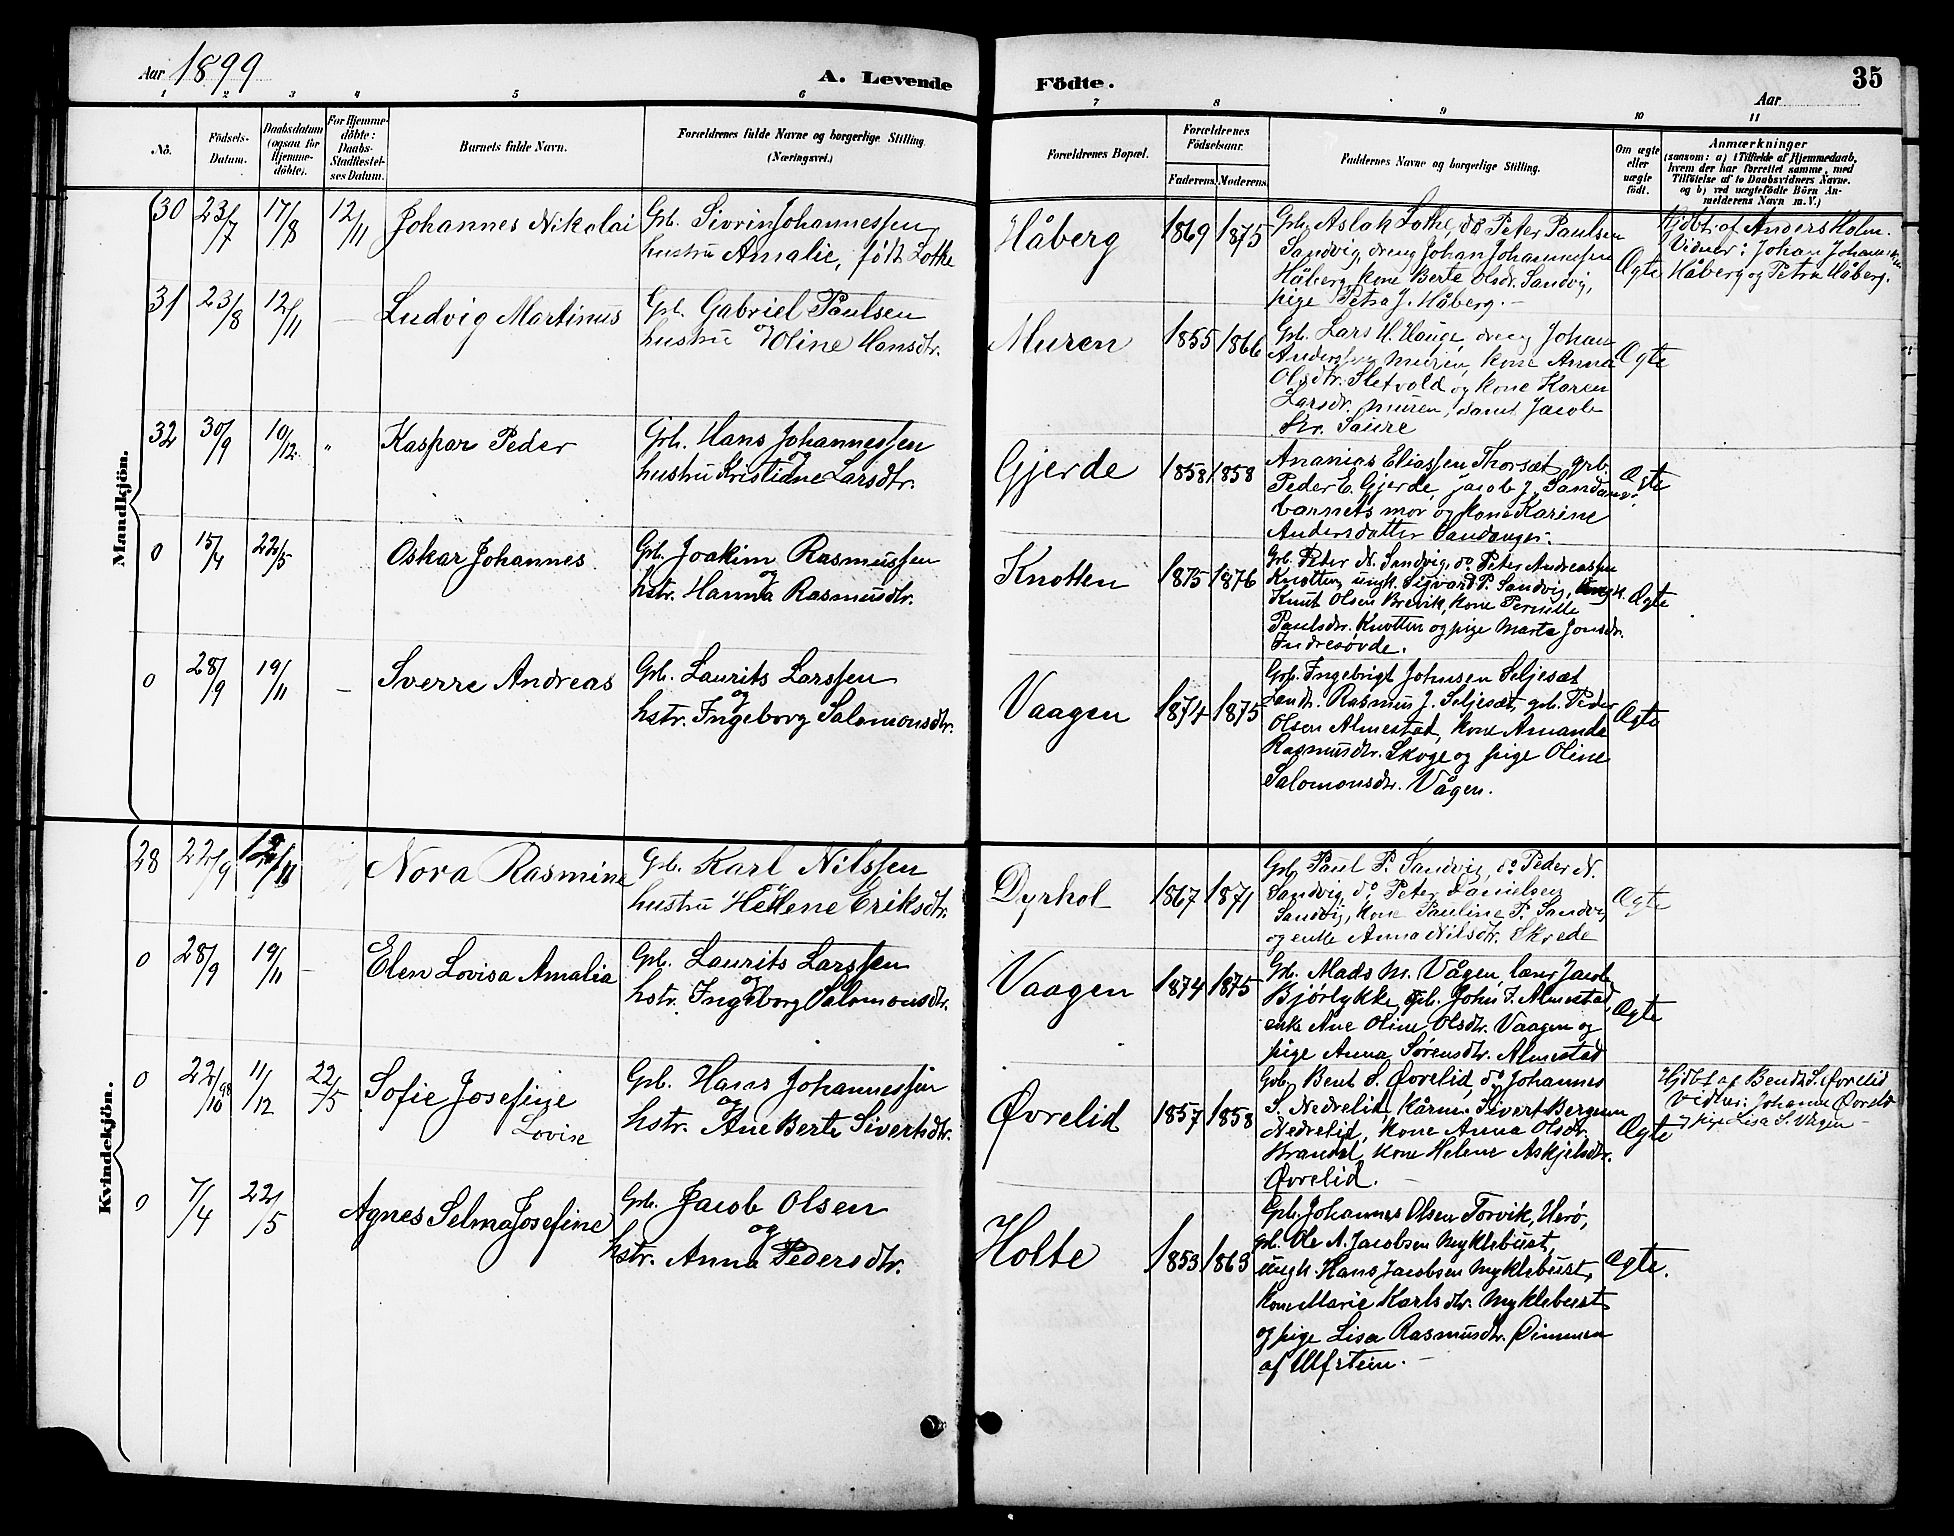 Aar 1899
A. Levende
Födte.
35
Aar
1 2 3 4 5 6 7 8 9 10 11
No.
Födsels-
Datum.
Daabsdatum
(ogsaa for
Hjemme-
döbte).
For Hjemme-
döbte:
Daabs-
Stadfæstel-
ses Datum.
Barnets fulde Navn.
Forældrenes fulde Navne og borgerlige Stilling.
(Næringsvei.)
Forældrenes Bopæl.
Forældrenes
Födselsaar.
Faderens. Moderens.
Faddernes Navne og borgerlige Stilling.
Om ægte
eller
uægte
födt.
Anmærkninger
(saasom: a) i Tilfælde af Hjemmedaab,
hvem der har forrettet samme, med
Tilföielse af to Daabsvidners Navne,
og b) ved uægtefödte Börn An-
melderens Navn m. V.)
Mandkjön.
30 23/7 17/8 12/11 Johannes Nikolai
Gb. Sivrin Johannessen
hustru Amalie, född Lothe
Håberg 1869 1875
Gb. Aslak Lothe, do Peter Paulsen
Sandvig, dreng Johan Johannessen
Håberg, kone Berte Olsdr. Sandvig,
pige Petra J. Håberg.
Ægte
Hjdbt. af Anders Holm.
Vidner: Johan Johannessen
Håberg og Petra Håberg.
31 23/8 12/11 – Ludvig Martinus
Gb. Gabriel Paulsen
hustru og Oline Hansdtr.
Muren 1855 1866
Gb. Lars H. Hauge, dreng Johan
Andersen Muren, kone Anna
Olsdtr. Sletvold og kone Karen
Larsdr. Muren, samt Jacob
Ægte
32 30/9 10/12 " Kaspar Peder
Grb. Hans Johannessen
og
hustru Kristiane Larsdtr.
Gjerde 1858 1858
Ananias Eliassen Thorsæt, grb.
Peder E. Gjerde, Jacob J. Sandanger
barnets mor og kone Karine
Andersdatter Sandanger.
Ægte
0 15/4 22/5 Oskar Johannes
Gb. Joakim Rasmussen
og
hstr. Hanna Rasmusdtr.
Knotten 1875 1876
Gb. Peter N. Sandvig, do Peter Andreassen
Knotten, ungk. Sigvard P. Sandvig, ungk.
Knut Olsen Brevik, kone Pernille
Paulsdtr. Knotten og pige Marta Jonsdr.
Indresøvde.
Ægte
0 28/9 19/11 – Sverre Andreas
Gb. Laurits Larssen
og
hstr. Ingeborg Salomonsdtr.
Vaagen 1874 1875
Grb. Ingebrigt Johnsen Seljesæt
Landh. Rasmus J. Seljesæt, grb. Peder
Olsen Almestad, kone Amanda
Rasmusdtr. Skoge og pige Oline
Salomonsdtr. Vågen.
Ægte
Kvindekjön.
28 22/9 12/11 Nora Rasmine
Gb. Karl Nilssen
hustru Helene Eriksdtr.
Dyrhol 1867 1871
Gb. Paul P. Sandvig, do Peder N.
Sandvig, do Peter Danielsen
Sandvig, kone Pauline P. Sandvig
og enke Anna Nilsdtr. Skrede
Ægte
0 28/9 19/11 – Elen Lovisa Amalia
Gb. Laurits Larssen
og
hstr. Ingeborg Salomonsdtr.
Vaagen 1874 1875
Gb. Mads M. Vågen, lærer Jacob
Bjørlykke, gb. John J. Almestad,
enke Ane Oline Olsdtr. Vaagen og
pige Anna Sørensdtr. Almestad
Ægte
0 22/10 98 11/12 22/5 Sofie Josefine
Lovise
Gb. Hans Johannessen
og
hstr. Ane Berte Sivertsdtr.
Øvrelid 1857 1858
Gb. Bent S. Øvrelid, do Johannes
S. Nedrelid, Kårm. Sivert Bergmann
Nedrelid, kone Anna Olsdtr.
Brandal, kone Helene Askjelsdtr.
Øvrelid.
Ægte
Hjdbt af Bendt S. Øvrelid
Vidner: Johanne Øvrelid
pige Lisa S. Vågen –
0 7/4 22/5 Agnes Selma Josefine
Gb. Jacob Olsen
og
hstr. Anna Pedersdtr.
Holte 1853 1863
Gb. Johannes Olsen Torvik, Herø,
gb. Ole A. Jacobsen Myklebust,
ungk. Hans Jacobsen Myklebust,
kone Marie Karlsdtr. Myklebust
og pige Lisa Rasmusdtr. Dimmen
af Ulfstein. –
Ægte.